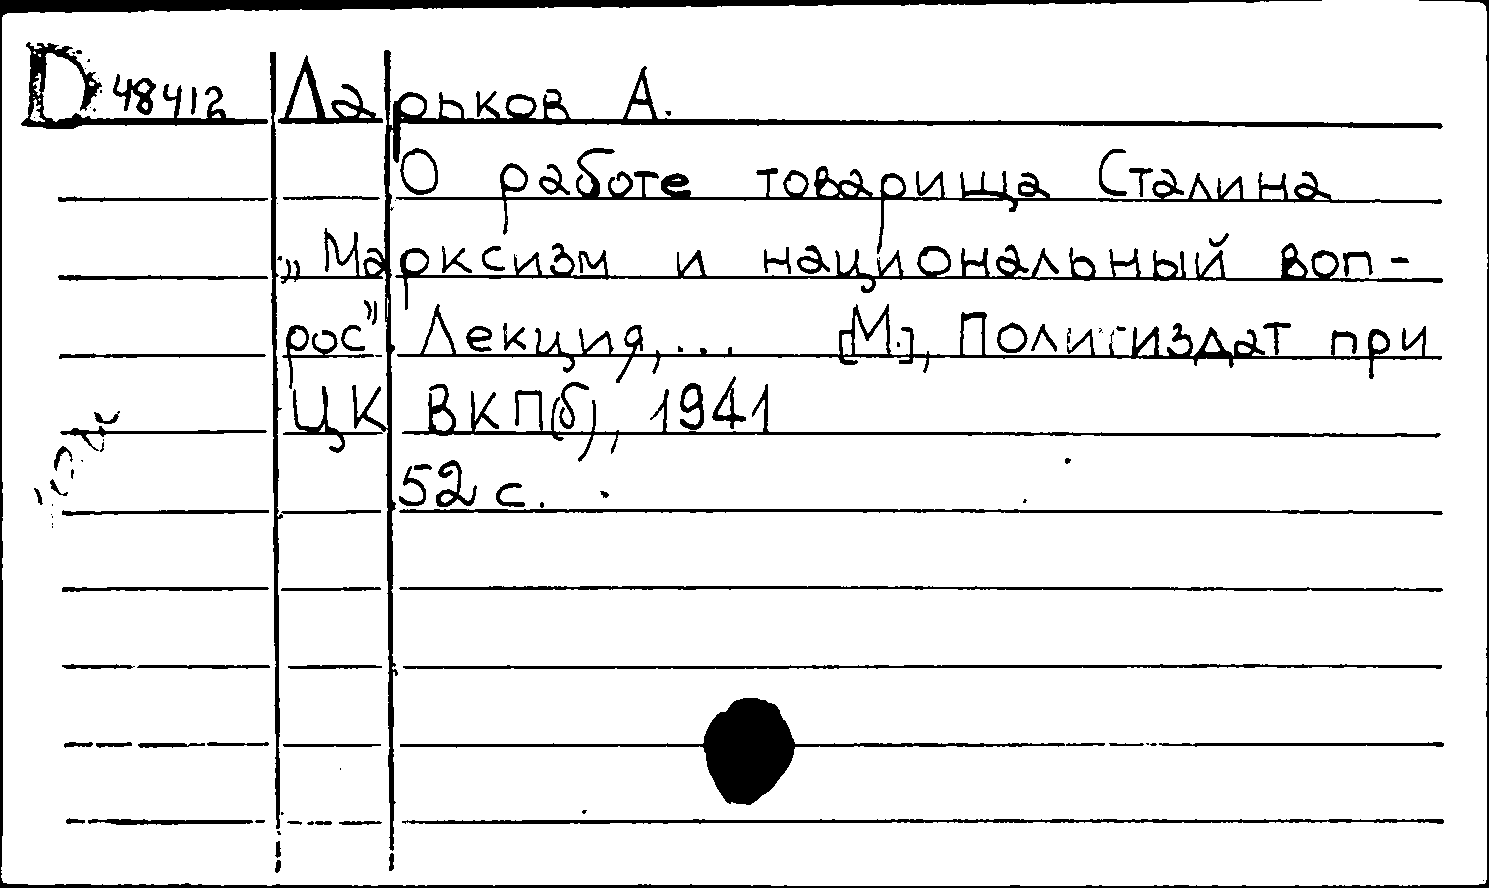 D 48412 Ларьков А.
О работе товарища Сталина
„Марксизм и национальный воп-
рос". Лекция,... [М.], Полигиздат при
ЦК ВКП(б), 1941
52 с.